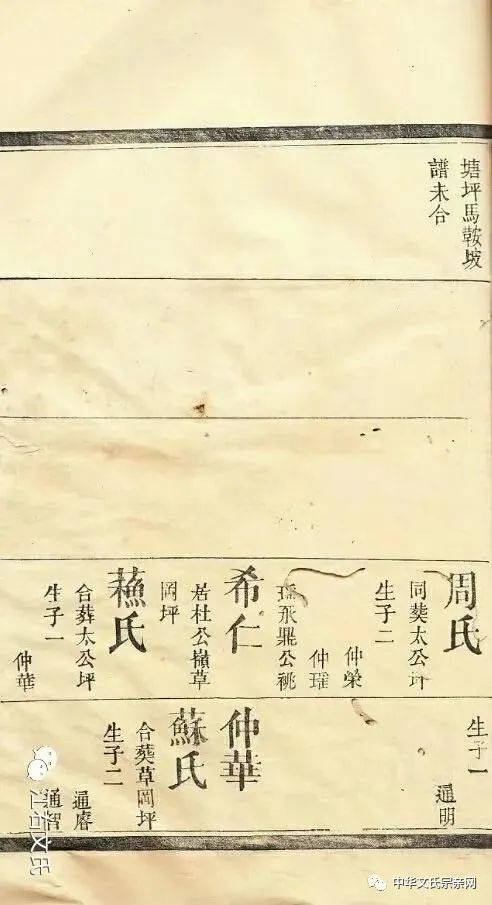 塘坪馬鞍坡
譜未合
周氏
同葬太公坪
生子二
仲榮
仲瓘
公祧
希仁
居杜公嶺草
岡坪
蘓氏
合葬太公坪
生子一
仲華
生子一
通明
仲華
蘇氏
合葬草岡坪
生子二
通睿
通智
江右文氏
中华文氏宗亲网